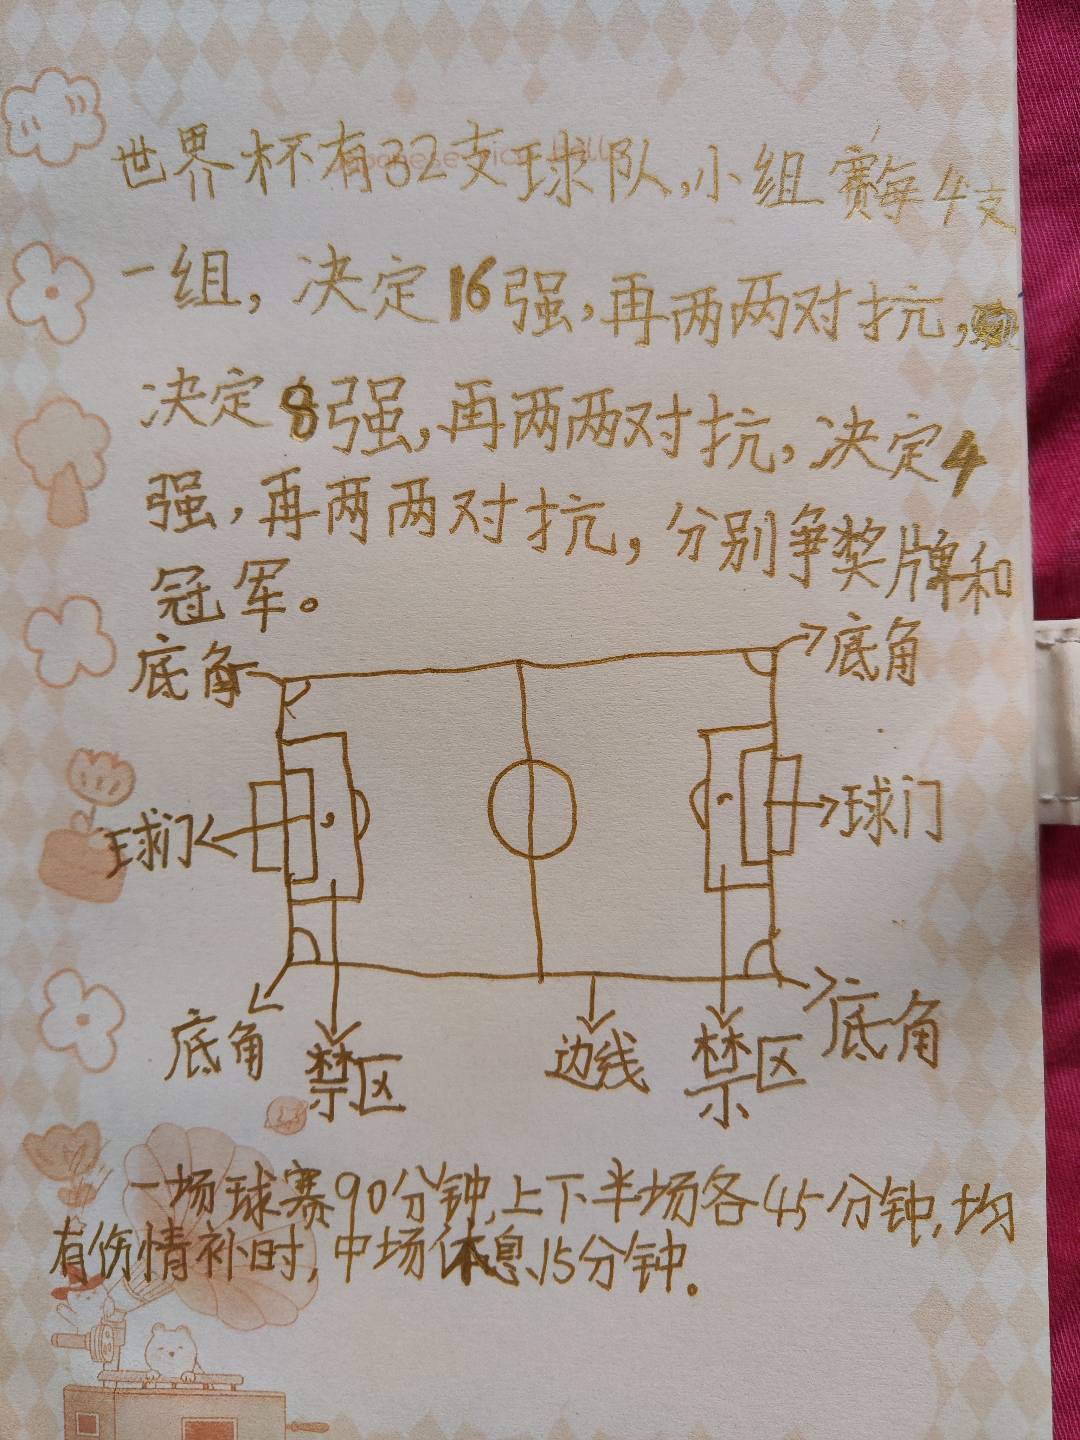 世界杯有32支球队,小组赛每4支
一组,决定16强,再两两对抗,
决定8强,再两两对抗,决定4
强,再两两对抗,分别争奖牌和
冠军。
底角
底角
球门
球门
底角
禁区
边线
禁区
底角
一场球赛90分钟,上下半场各45分钟,均
有伤情补时,中场休息15分钟。